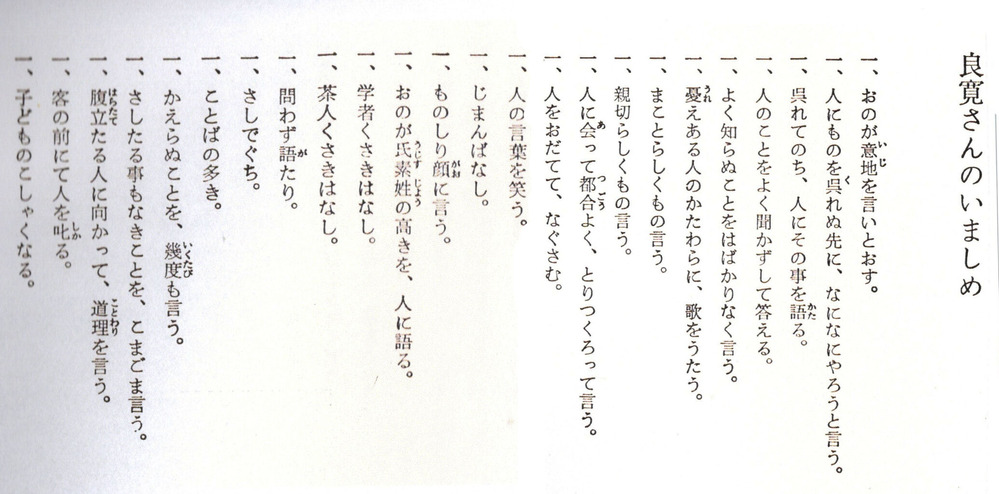 良寛さんのいましめ
一、おのが意地を言いとおす。
一、人にものを呉れぬ先に、なになにやろうと言う。
一、呉れてのち、人にその事を語る。
一、人のことをよく聞かずして答える。
一、よく知らぬことをはばかりなく言う。
一、憂えある人のかたわらに、歌をうたう。
一、まことらしくもの言う。
一、親切らしくもの言う。
一、人に会って都合よく、とりつくろって言う。
一、人をおだてて、なぐさむ。
一、人の言葉を笑う。
一、じまんばなし。
一、ものしり顔に言う。
一、おのが氏素姓の高きを、人に語る。
一、学者くさきはなし。
一、茶人くさきはなし。
一、問わず語たり。
一、さしでぐち。
一、ことばの多き。
一、かえらぬことを、幾度も言う。
一、さしたる事もなきことを、こまごま言う。
一、腹立たる人に向かって、道理を言う。
一、客の前にて人を叱る。
一、子どものこしゃくなる。